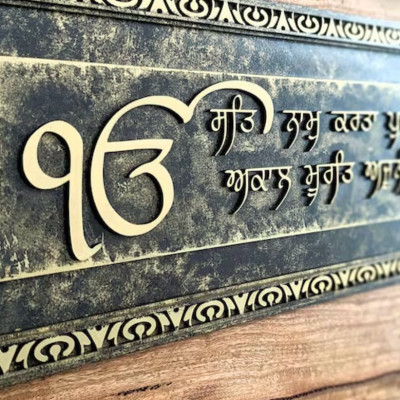 ੴ ਸਤਿ ਨਾਮੁ ਕਰਤਾ
ਅਕਾਲ ਮੂਰਤਿ